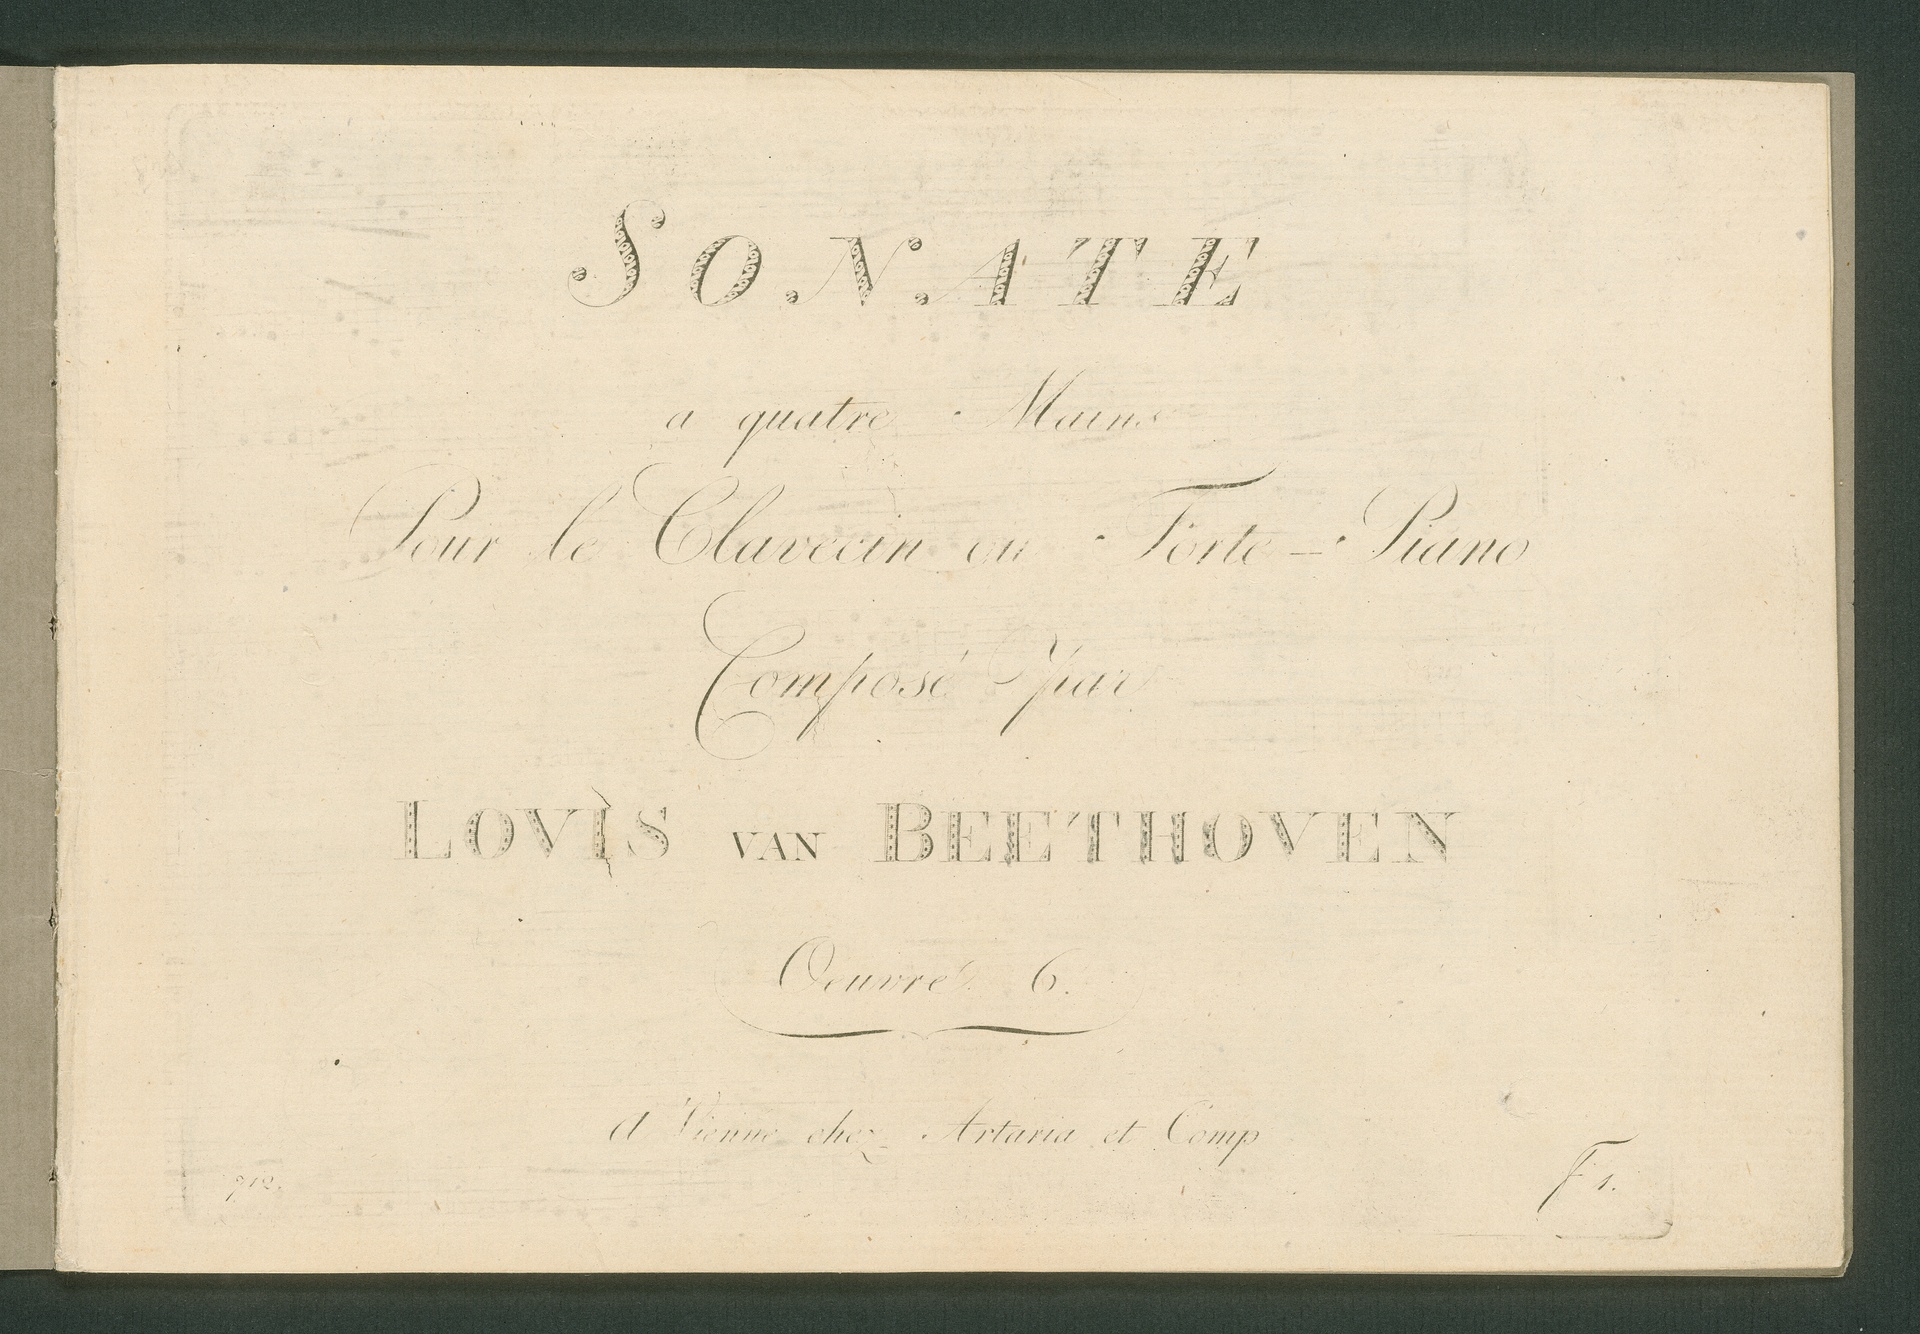 SONATE
a quatre Mains
Pour le Clavecin ou Forte-Piano
Composé par
LOVIS VAN BEETHOVEN
Oeuvre 6.
a Vienne chez Artaria et Comp
712.
F 1.